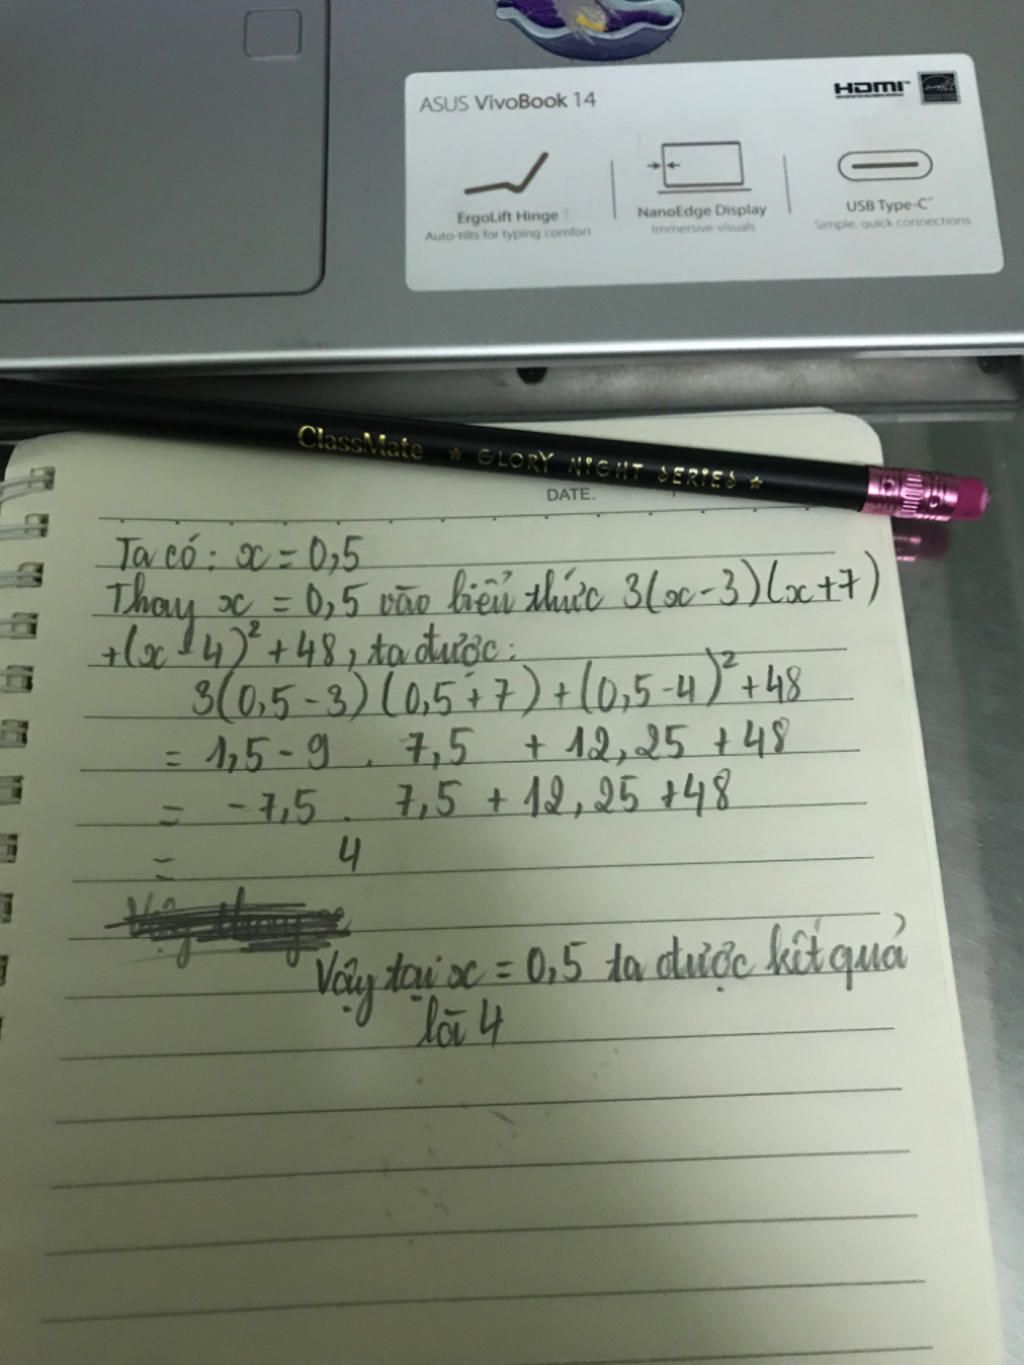 ASUS VivoBook 14
HDMI
ErgoLift Hinge
Auto-tilts for typing comfort
NanoEdge Display
Immersive visuals
USB Type-C™
Simple, quick connections
ClassMate ★ GLORY NIGHT SERIES ★
DATE.
Ta có: x = 0,5
Thay x = 0,5 vào biểu thức 3(x-3)(x+7)
+(x-4)² + 48, ta được:
3(0,5-3)(0,5+7)+(0,5-4)²+48
= 1,5-9 . 7,5 + 12,25 +48
= -7,5 . 7,5 + 12,25 +48
= 4
Vậy tại x = 0,5 ta được kết quả
là 4